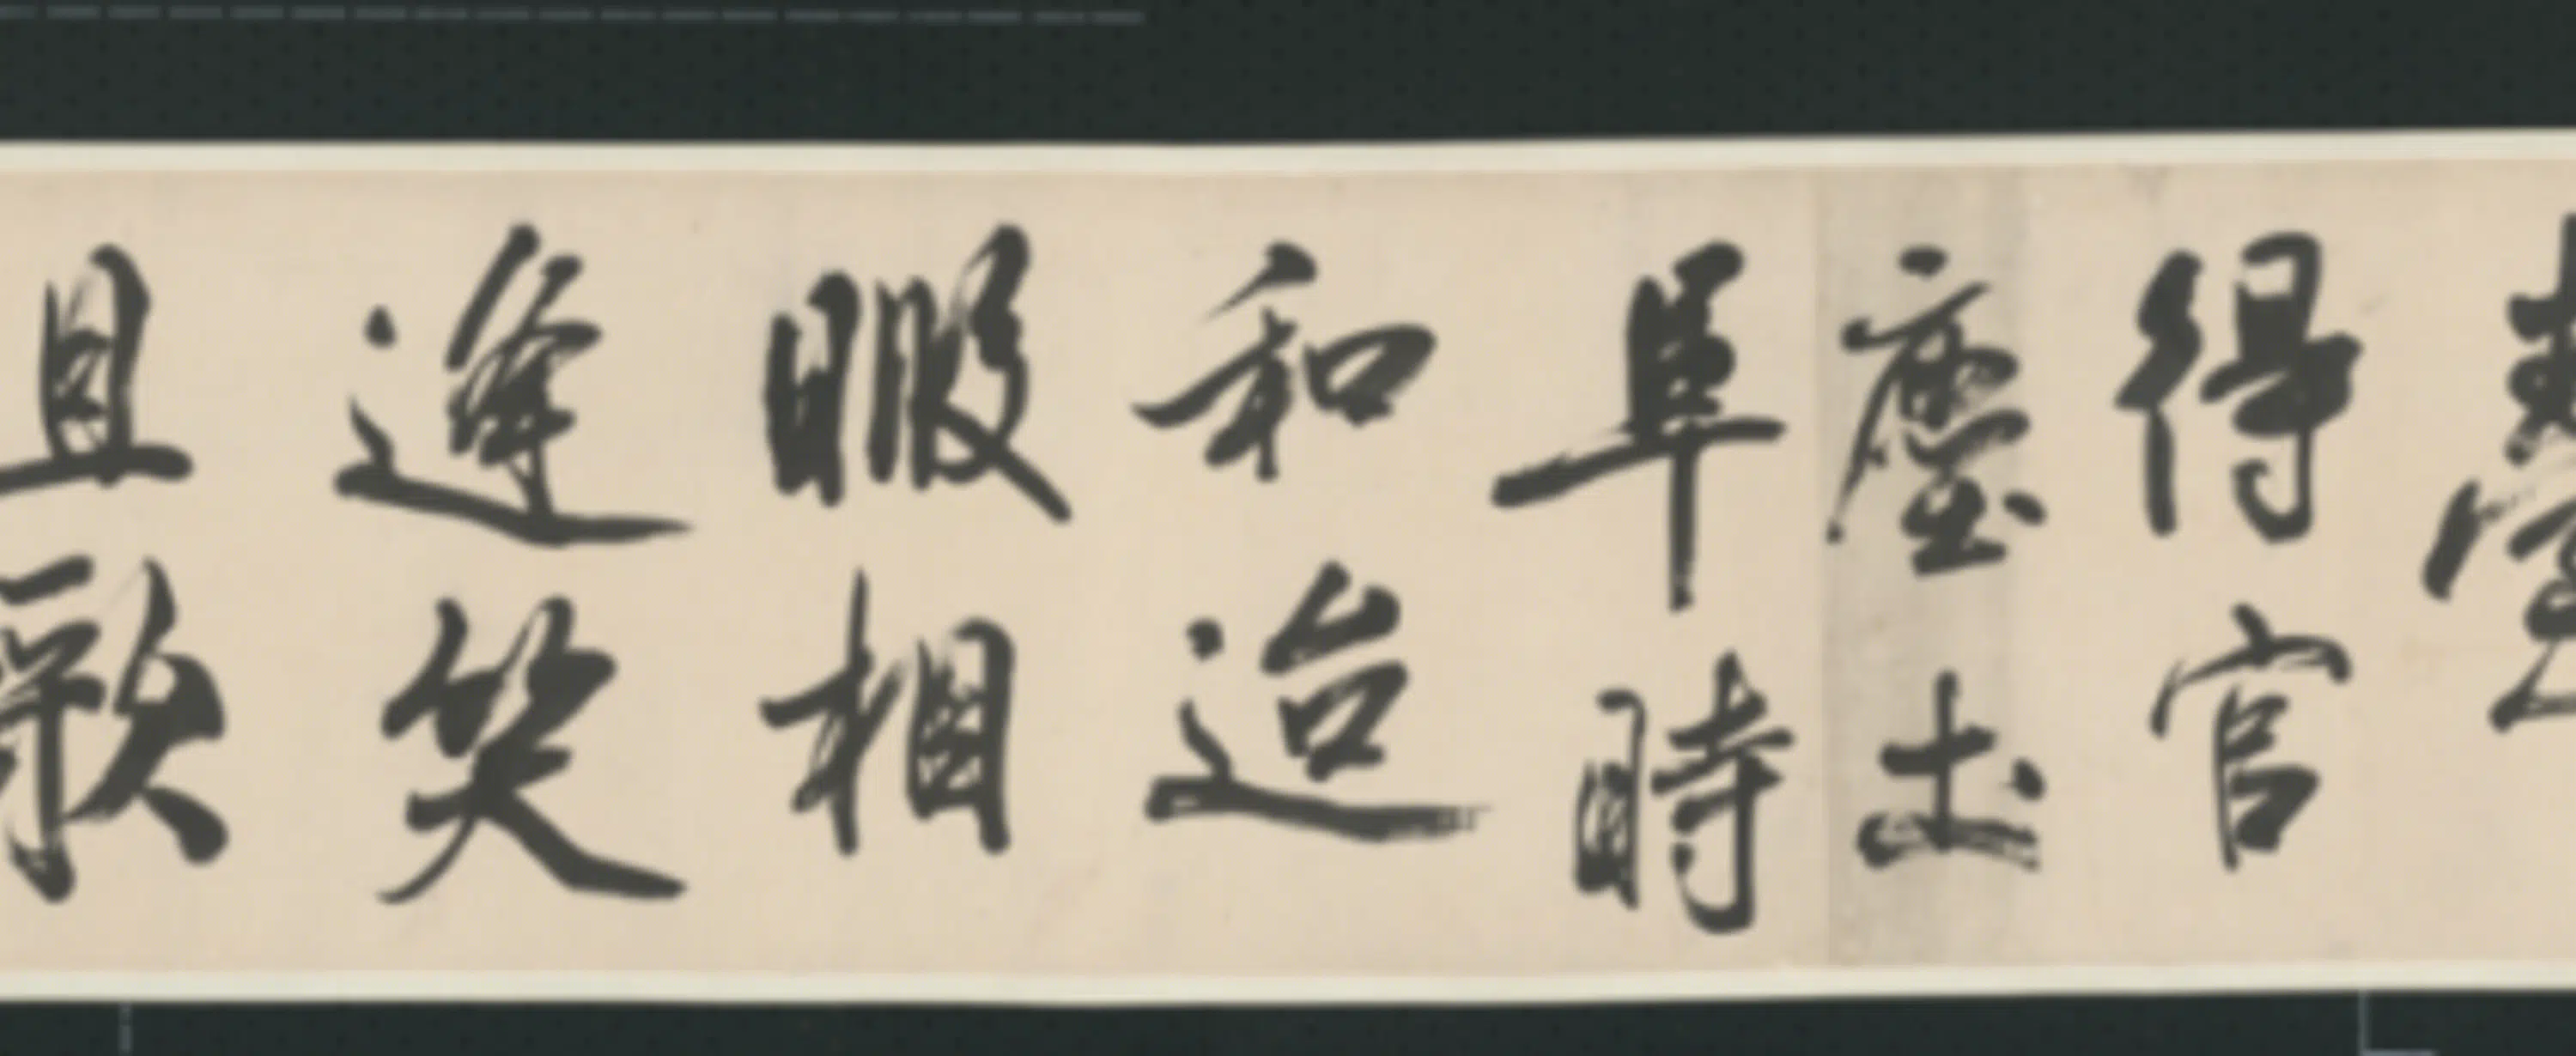 得官
塵土
阜時
和迨
暇相
逢笑
且歌